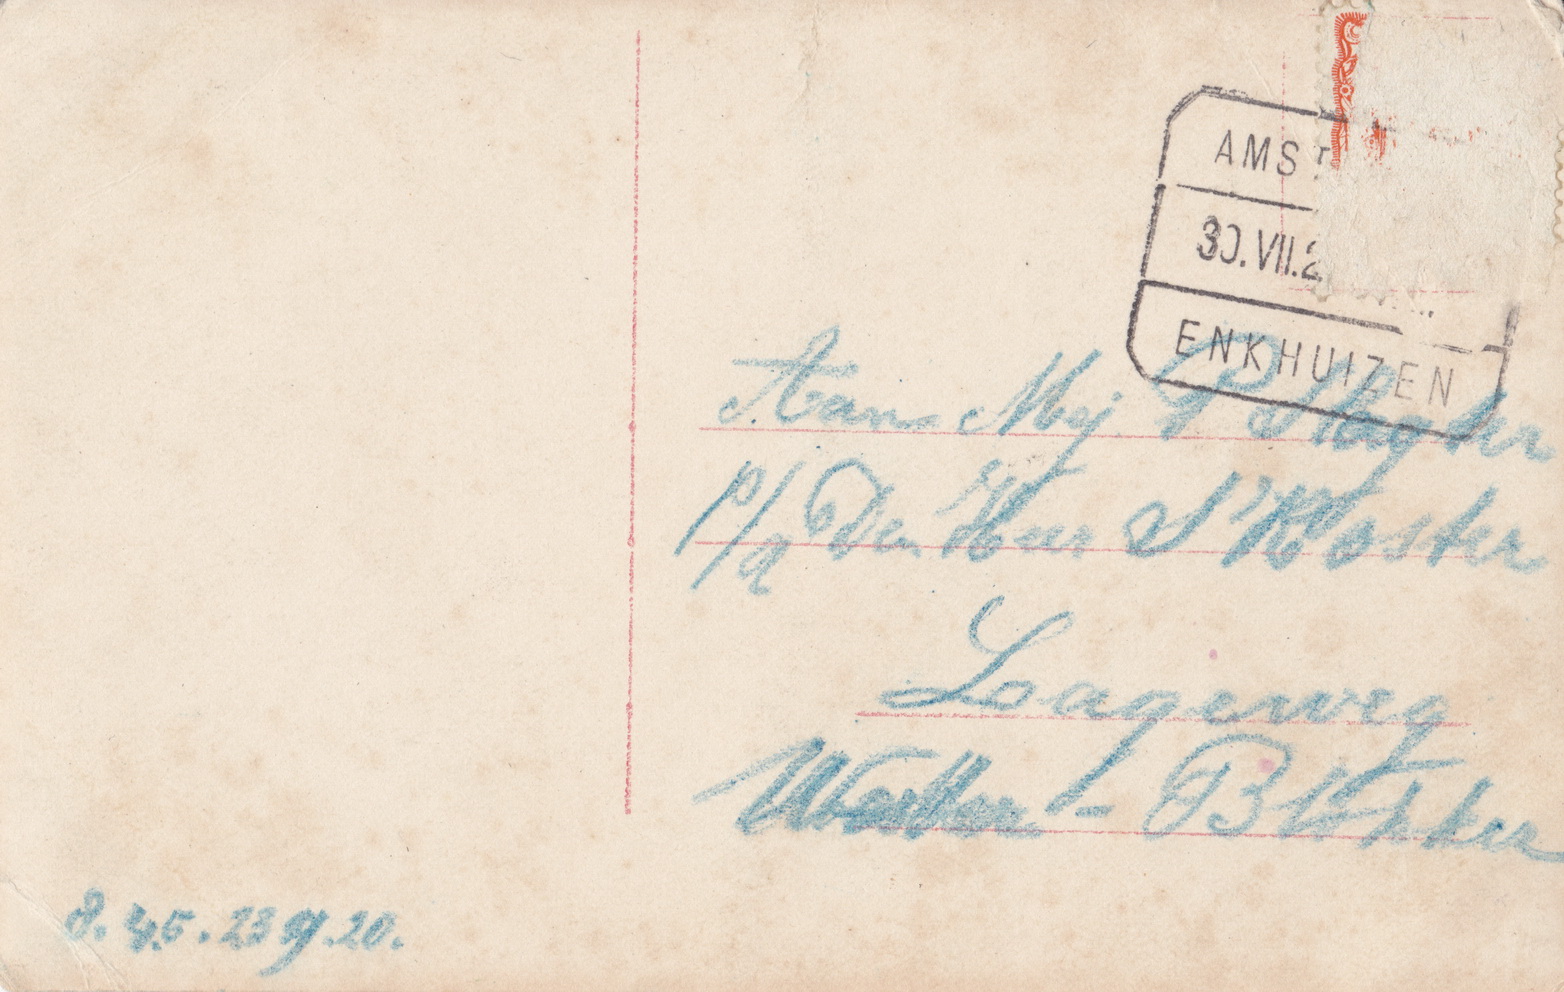 AMST
30.VII.2
ENKHUIZEN
Aan Mej P Slagter
p/a Den Heer S Koster
Lageweg
Wester-Blokker